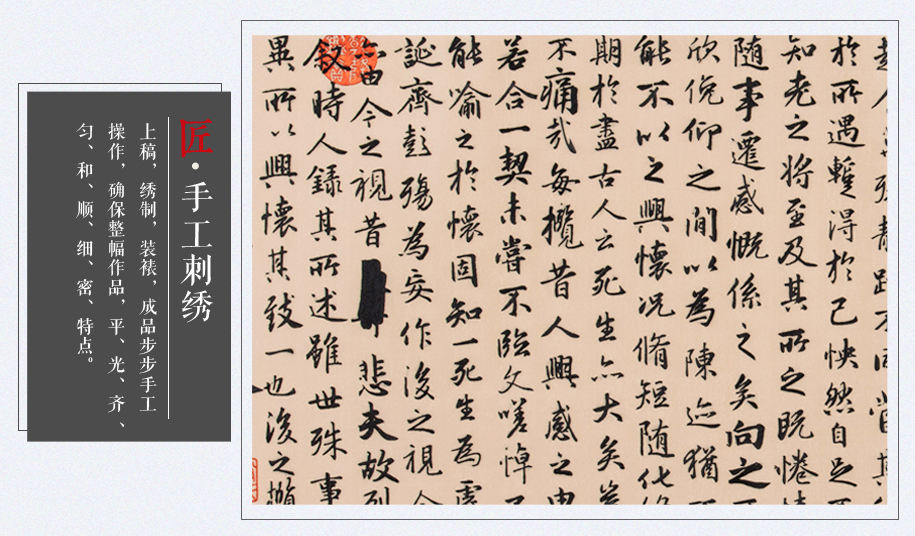 匠·手工刺绣
上稿，绣制，装裱，成品步步手工
操作，确保整幅作品，平、光、齐、
匀、和、顺、细、密、特点。
於所遇蹔得於己怏然自足
知老之將至及其所之既惓
隨事遷感慨係之矣向之
欣俛仰之閒以為陳迹猶
能不以之興懷況脩短隨化
期於盡古人云死生亦大矣
不痛哉每攬昔人興感之由
若合一契未嘗不臨文嗟悼
能喻之於懷固知一死生為虛
誕齊彭殤為妄作後之視今
亦由今之視昔悲夫故列
敘時人錄其所述雖世殊事
異所以興懷其致一也後之攬